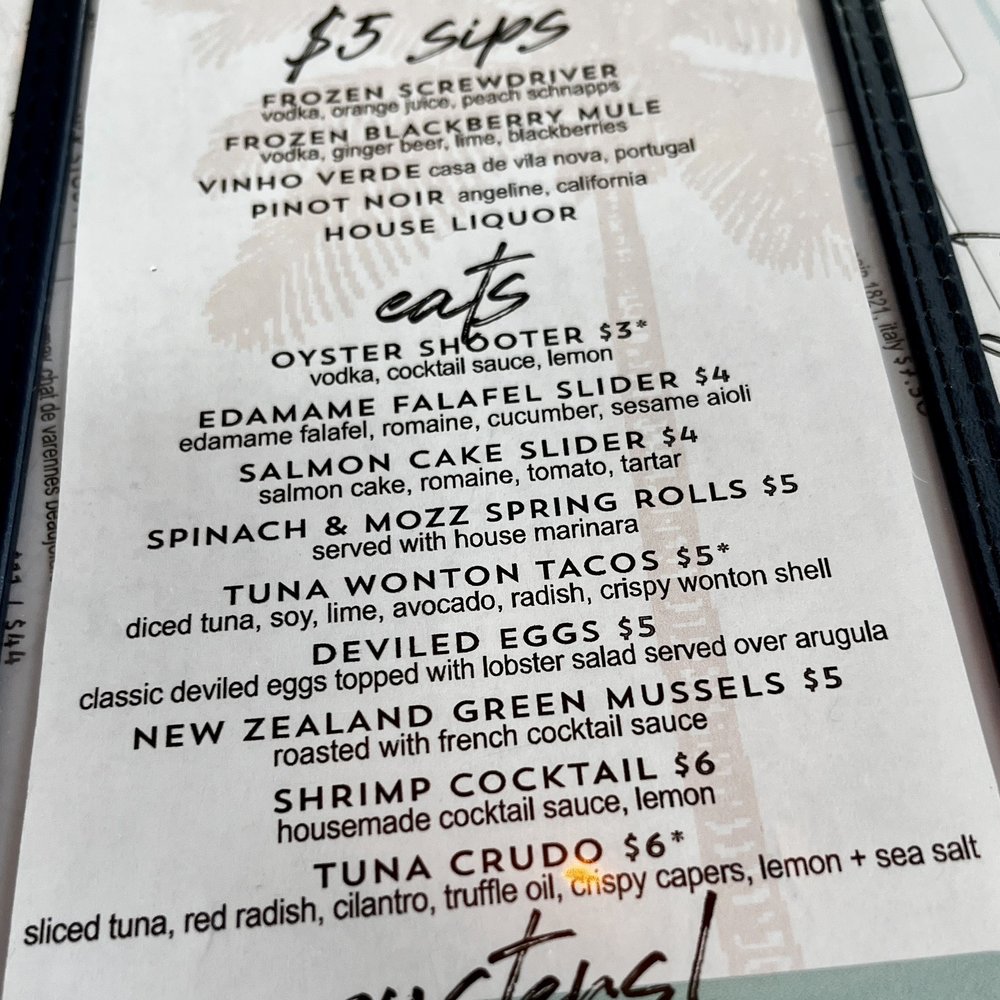 $5 sips
FROZEN SCREWDRIVER
vodka, orange juice, peach schnapps
FROZEN BLACKBERRY MULE
vodka, ginger beer, lime, blackberries
VINHO VERDE casa de vila nova, portugal
PINOT NOIR angeline, california
HOUSE LIQUOR
eats
OYSTER SHOOTER $3*
vodka, cocktail sauce, lemon
EDAMAME FALAFEL SLIDER $4
edamame falafel, romaine, cucumber, sesame aioli
SALMON CAKE SLIDER $4
salmon cake, romaine, tomato, tartar
SPINACH & MOZZ SPRING ROLLS $5
served with house marinara
TUNA WONTON TACOS $5*
diced tuna, soy, lime, avocado, radish, crispy wonton shell
DEVILED EGGS $5
classic deviled eggs topped with lobster salad served over arugula
NEW ZEALAND GREEN MUSSELS $5
roasted with french cocktail sauce
SHRIMP COCKTAIL $6
housemade cocktail sauce, lemon
TUNA CRUDO $6*
sliced tuna, red radish, cilantro, truffle oil, crispy capers, lemon + sea salt
chat de varennes
$44
1821, italy